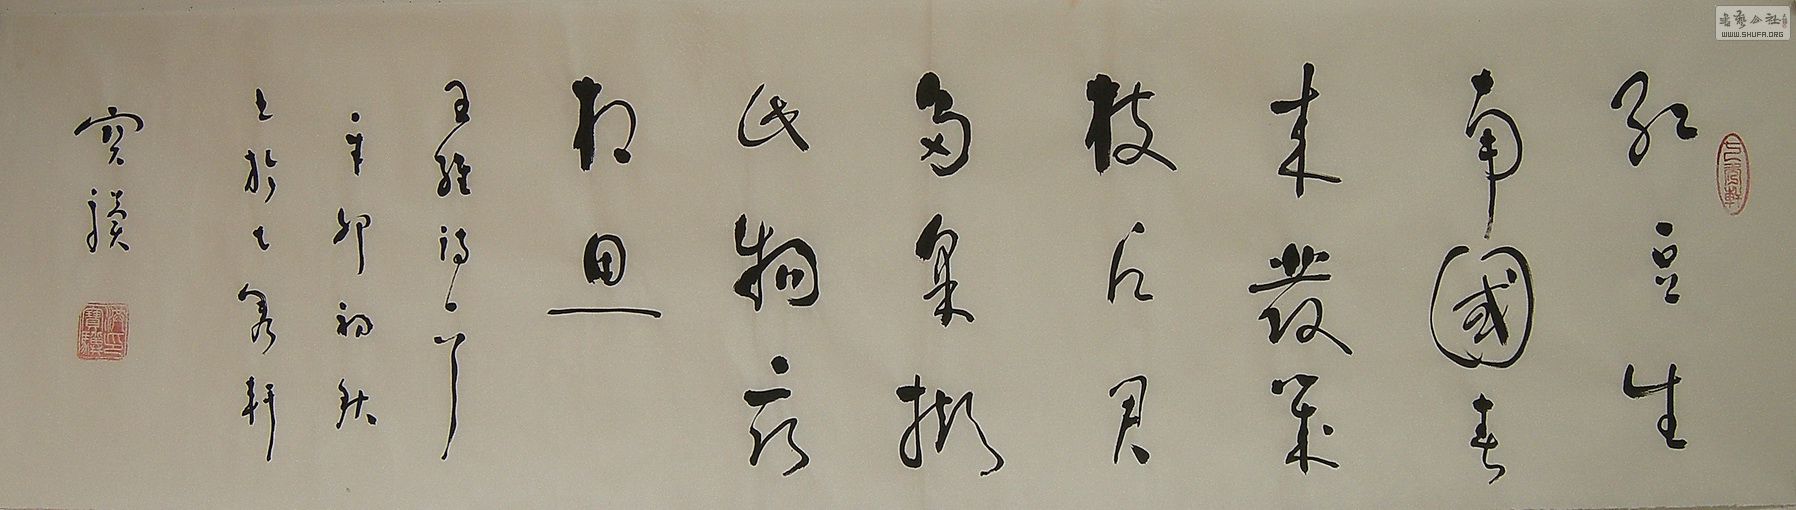 紅豆生
南國春
來發幾
枝願君
多采擷
此物最
相思
王維詩一首
辛卯初秋
軒
寶驥
書藝公社
WWW.SHUFA.ORG